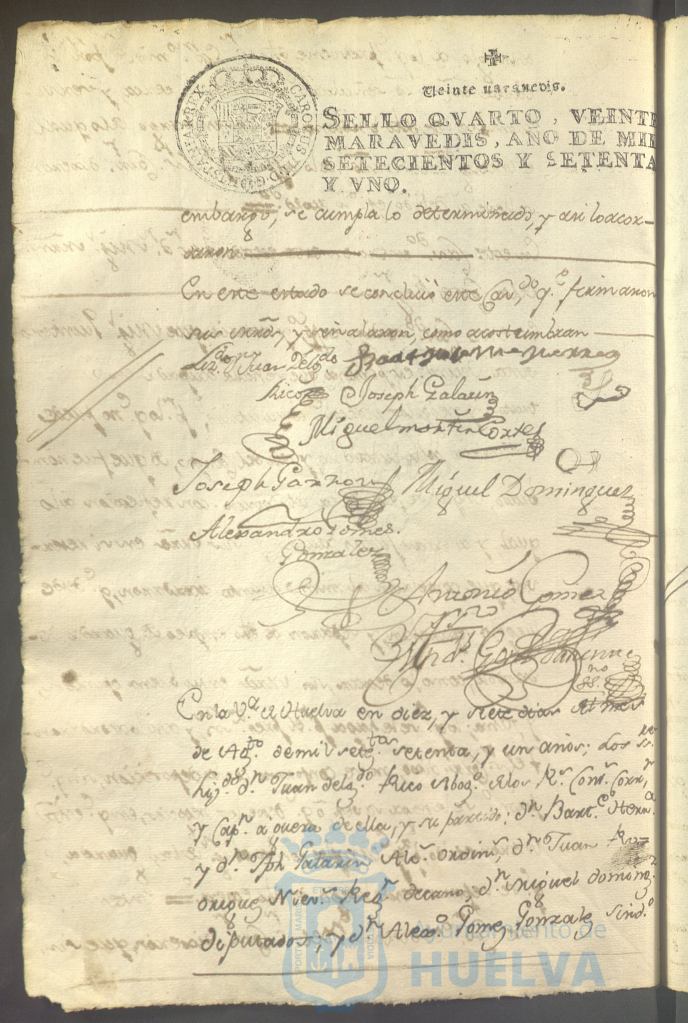 Veinte maravedis.
SELLO QVARTO, VEINTE
MARAVEDIS, AÑO DE MIL
SETECIENTOS Y SETENTA
Y VNO.
CAROLUS III D G HISPANIAR REX
embargo, se cumpla lo determinado, y asi lo acor-
daron
En este estado se concluió este Cav.do q.e firmaron
sus mrds, y señalaron, como acostumbran
Liz.do Dn Juan Delg.do
Rico Joseph Galavin
Miguel martin Cortes
Joseph Garron Miguel Dominguez
Alexandro Gomez.
Gonzalez
Antonio Gomez
En la V.a de Huelva en diez, y siete dias del mes
de Ag.to de mil sete.s setenta, y un años; Los ss.res
Liz.do d.n Juan Delg.do Rico Abog.do de los R.s Cons.s Corr.r
y Cap.n a guerra de ella, y su partido; d.n Bart.e
y d.n Jph Galavin Alc.s ordin.s, d.n Juan
Nieu.s Reg.r decano, d.n Miguel doming.z
diputados, y d.n Alex.o Gomez Gonzalez sind.o
Ayuntamiento de
HUELVA